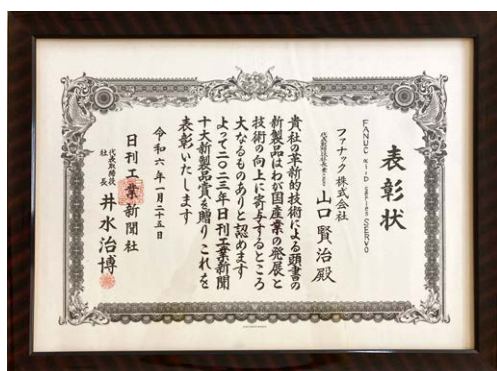 表彰状
FANUC αi-D series SERVO
ファナック株式会社
代表取締役社長兼CEO 山口賢治殿
貴社の革新的技術による頭書の
新製品はわが国産業の発展と
技術の向上に寄与するところ
大なるものありと認めます
よって二〇二三年日刊工業新聞
十大新製品賞を贈りこれを
表彰いたします
令和六年一月二十五日
日刊工業新聞社
代表取締役社長 井水治博